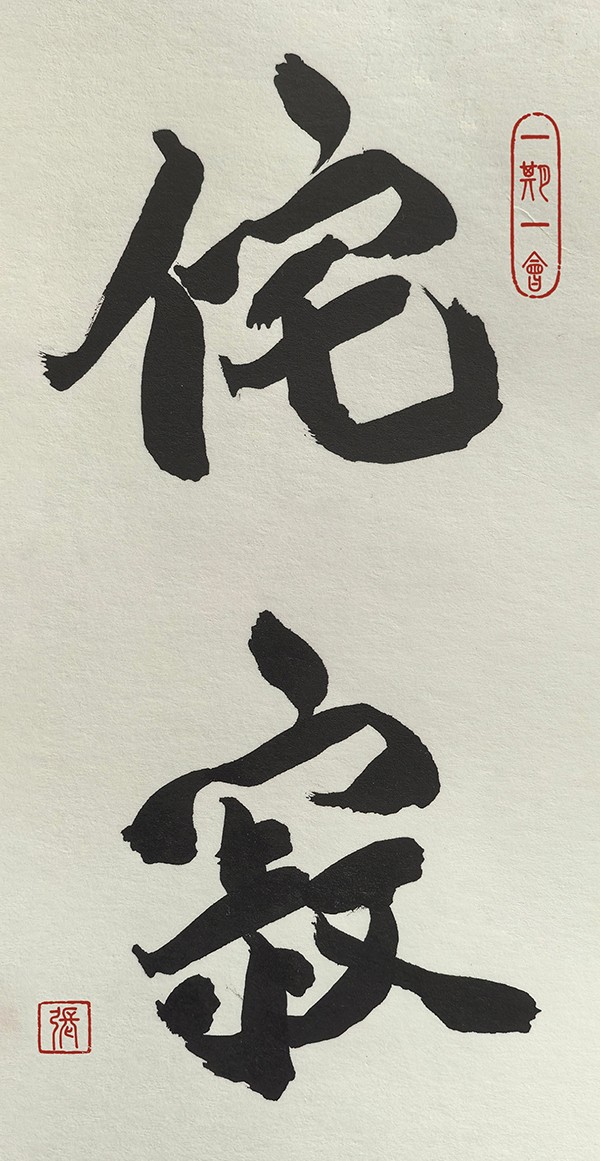 一期一會
侘寂
張